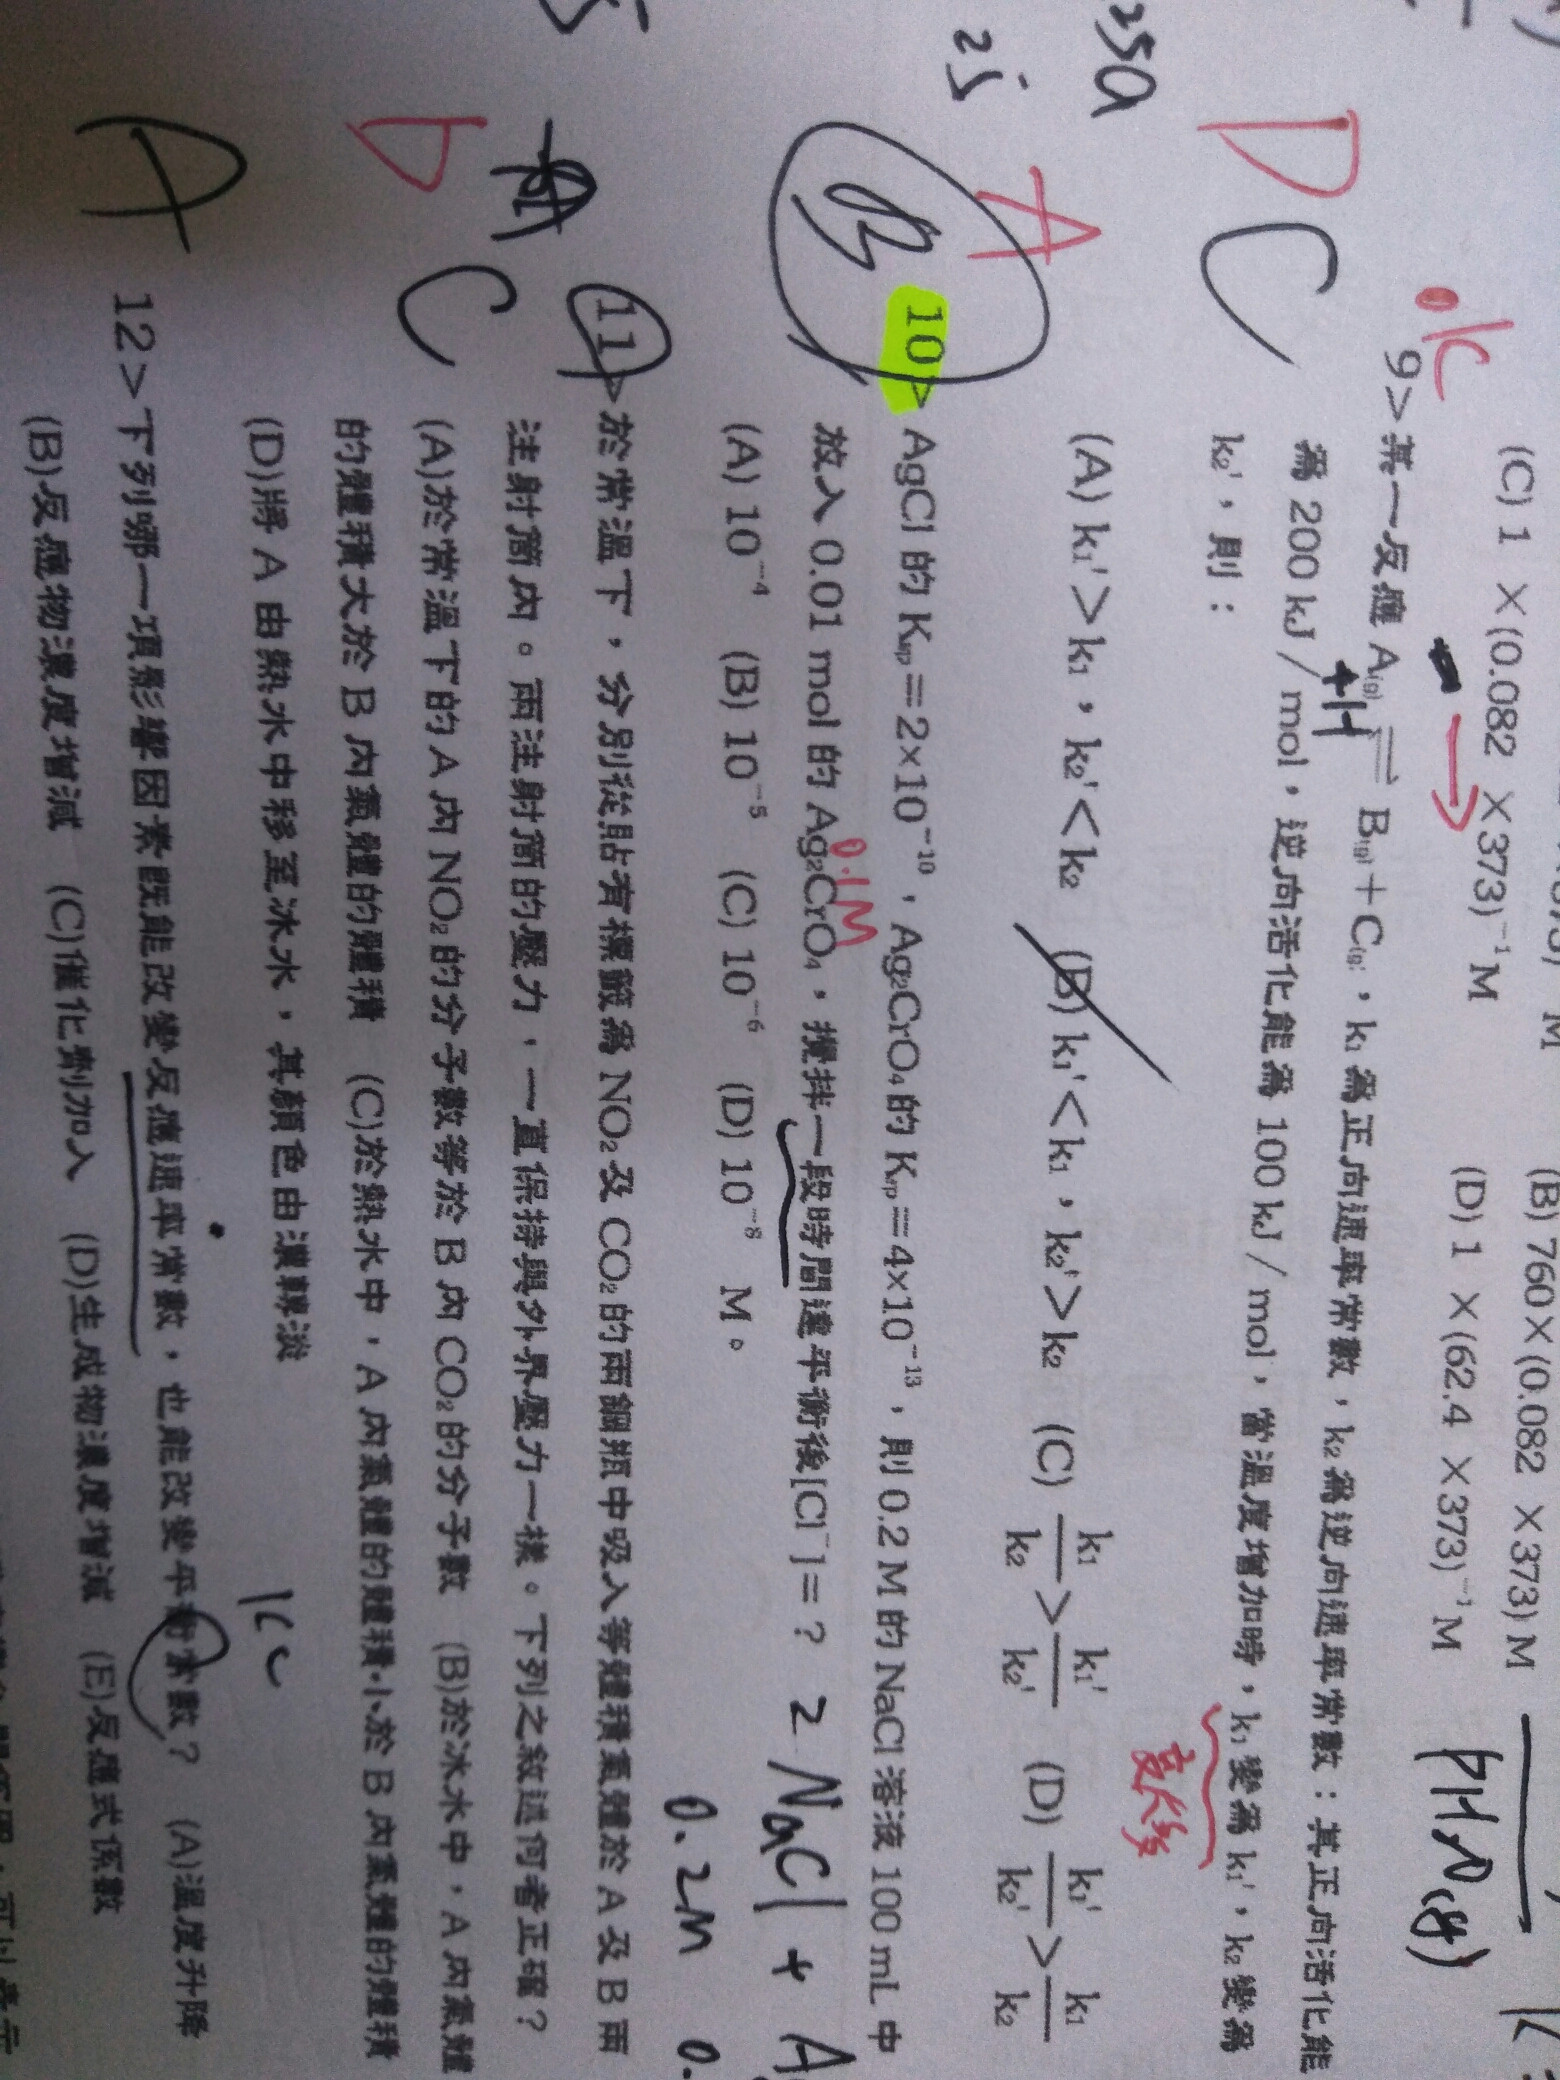 (B) 760×(0.082 ×373) M
(C) 1 ×(0.082 ×373)⁻¹ M (D) 1 ×(62.4 ×373)⁻¹ M
D C
9>某一反應 A(g) ⇌ B(g)+C(g),k₁ 為正向速率常數,k₂ 為逆向速率常數;其正向活化能
為 200 kJ/mol,逆向活化能為 100 kJ/mol,當溫度增加時,k₁ 變為 k₁',k₂ 變為
k₂',則:
+H
(A) k₁'>k₁,k₂'<k₂ (B) k₁'<k₁,k₂'>k₂ (C) k₁/k₂>k₁'/k₂' (D) k₁'/k₂'>k₁/k₂
250
25
A
B
10> AgCl 的 Ksp=2×10⁻¹⁰,Ag₂CrO₄ 的 Ksp=4×10⁻¹³,則 0.2 M 的 NaCl 溶液 100 mL 中
0.1M
放入 0.01 mol 的 Ag₂CrO₄,攪拌一段時間達平衡後[Cl⁻]=? 2 NaCl + A
(A) 10⁻⁴ (B) 10⁻⁵ (C) 10⁻⁶ (D) 10⁻⁸ M。
0.2M 0.
11>於常溫下,分別從貼有標籤為 NO₂ 及 CO₂ 的兩鋼瓶中吸入等體積氣體於 A 及 B 兩
注射筒內。兩注射筒的壓力,一直保持與外界壓力一樣。下列之敘述何者正確?
(A)於常溫下的 A 內 NO₂ 的分子數等於 B 內 CO₂ 的分子數 (B)於冰水中,A 內氣體
的體積大於 B 內氣體的體積 (C)於熱水中,A 內氣體的體積小於 B 內氣體的體積
(D)將 A 由熱水中移至冰水,其顏色由濃轉淡
D
C
Kc
A
12>下列哪一項影響因素既能改變反應速率常數,也能改變平衡常數? (A)溫度升降
(B)反應物濃度增減 (C)催化劑加入 (D)生成物濃度增減 (E)反應式係數